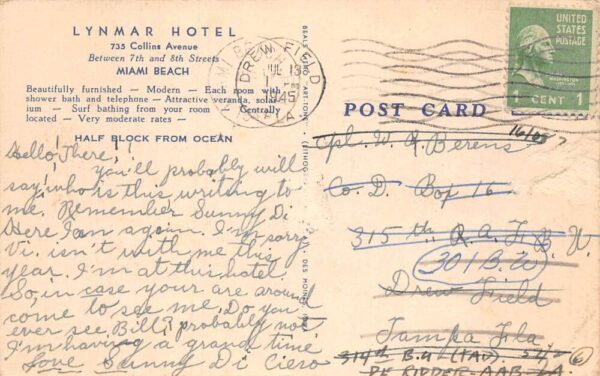 LYNMAR HOTEL
735 Collins Avenue
Between 7th and 8th Streets
MIAMI BEACH
Beautifully furnished — Modern — Each room with
shower bath and telephone — Attractive veranda, solar-
ium — Surf bathing from your room — Centrally
located — Very moderate rates —
HALF BLOCK FROM OCEAN
Hello! There!!
You'll probably will
say, who is this writing to
me. Remember Sunny Di
Here I am again. I'm sorry
Vi. isn't with me this
year. I'm at this hotel.
So, in case your are around
come to see me. Do you
ever see Bill? probably not
I'm having a grand time
Love Sunny Di Cieso
DREW FIELD
JUL 13
1945
UNITED
STATES
POSTAGE
WASHINGTON
1 CENT 1
POST CARD
Cpl. W. R. Berens
Co. D. Bop 16
315 th
B. W.
301 B.W
Drew Field
Tampa Fla
314th B.U (TAD)
DE RIDDER AAB LA
6